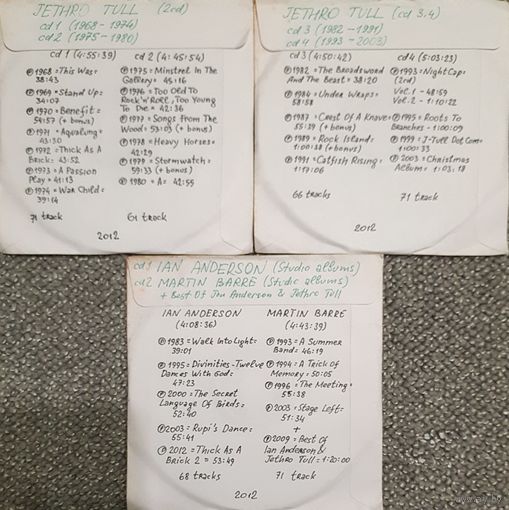 JETHRO TULL (2cd)
cd 1 (1968-1974)
cd 2 (1975-1980)
cd 1 (4:55:39)
℗1968=This Was=
38:43
1969=Stand Up=
34:07
℗1970=Benefit=
54:57 (+ bonus)
℗1971=Aqualung=
43:30
℗1972=Thick As A
Brick= 43:52
℗1973=A Passion
Play= 41:13
℗1974=War Child=
39:14
71 track
cd 2 (4:45:54)
℗1975=Minstrel In The
Gallery= 45:16
℗1976=Too Old To
Rock'n'Roll, Too Young
To Die= 42:36
℗1977=Songs From The
Wood= 53:03 (+ bonus)
℗1978=Heavy Horses=
42:29
℗1979=Stormwatch=
59:33 (+ bonus)
℗1980=A= 42:55
61 track
2012
JETHRO TULL (cd 3,4)
cd 3 (1982-1991)
cd 4 (1993-2003)
cd 3 (4:50:42)
℗1982=The Broadsword
And The Beast= 38:20
℗1984=Under Wraps=
58:58
℗1987=Crest Of A Knave=
55:39 (+ bonus)
℗1989=Rock Island=
1:00:38 (+ bonus)
℗1991=Catfish Rising=
1:17:06
66 tracks
cd 4 (5:03:23)
℗1993=NightCap=
(2cd)
Vol.1-48:59
Vol.2-1:10:22
℗1995=Roots To
Branches-1:00:09
℗1999=J-Tull Dot Com=
1:00:33
℗2003=Christmas
Album=1:03:18
71 track
2012
cd 1 IAN ANDERSON (Studio albums)
cd 2 MARTIN BARRE (Studio albums)
+ Best Of Ian Anderson & Jethro Tull
IAN ANDERSON
(4:08:36)
℗1983=Walk Into Light=
39:01
℗1995=Divinities-Twelve
Dances With God=
47:23
℗2000=The Secret
Language Of Birds=
52:40
℗2003=Rupi's Dance=
55:41
℗2012=Thick As A
Brick 2 = 53:49
68 tracks
MARTIN BARRE
(4:43:39)
℗1993=A Summer
Band=46:19
℗1994=A Trick Of
Memory=50:05
℗1996=The Meeting=
55:38
℗2003=Stage Left=
51:34
+
℗2009=Best Of
Ian Anderson &
Jethro Tull=1:20:00
71 track
2012